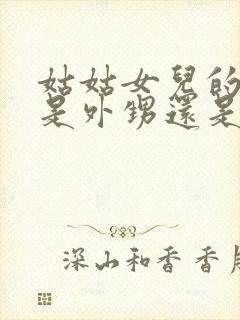 姑姑女兒的
是外甥還是
深山和香香